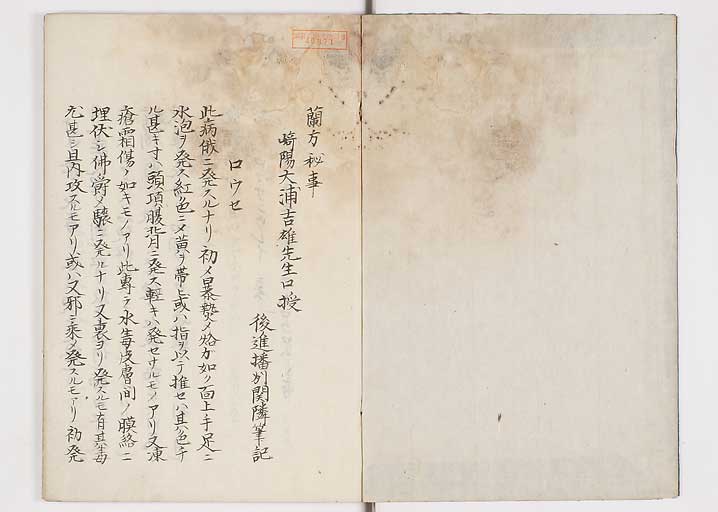 蘭方秘事
崎陽大浦吉雄先生口授
後進播州関隣筆記
ロウセ
此病俄ニ発スルナリ初メ暴熱〆烙カ如ク面上手足ニ
水泡ヲ発ス紅色ニ〆黄ヲ帯ヒ或ハ指ヲ以テ推セハ其色チ
ル甚キ寸ハ頭項腹背ニ発ス軽キハ発セサルモノアリ又凍
瘡霜傷ノ如キモノアリ此専ラ水毒皮膚間ノ膜絡ニ
埋伏シ佛欝〆驟ニ発ルナリ又裏ヨリ発スルモ有其毒
尤甚シ且内攻スルモアリ或ハ又邪ニ乗〆発スルモアリ初発